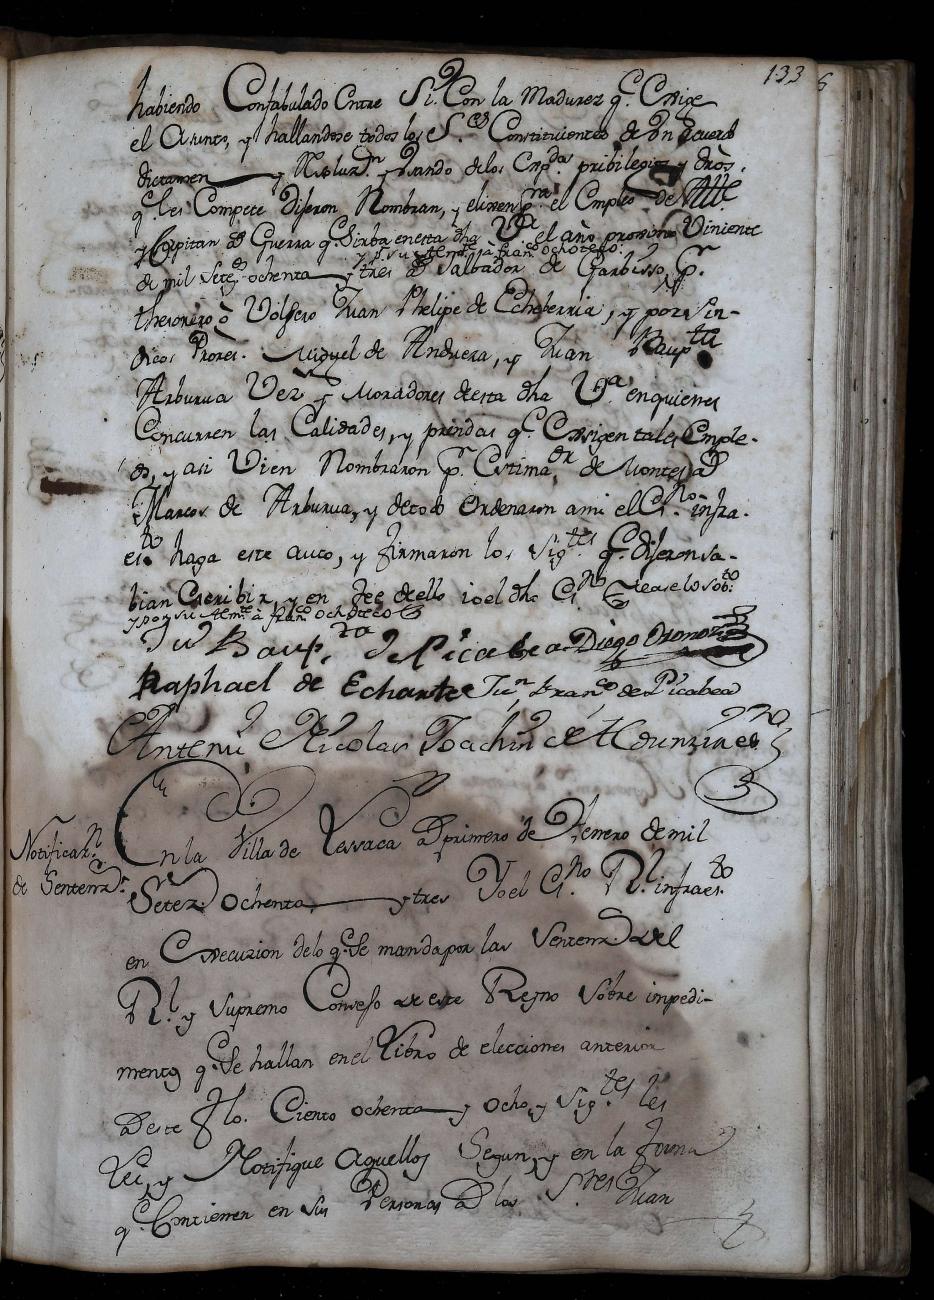 133
habiendo Confabulado Entre Si, Con la Madurez q.e Exige
el Asunto, y hallandose todos los S.res Constituientes de Vn Acuerdo
dictamen y Resoluz.n Vsando delos Exp.dos pribilegios y dros.
q.e les Compete Dijeron Nombran, y eligen p.ra el Empleo de Alc.e
y Capitan de Guerra q.e Sirba enesta dha V.a el año proximo Viniente
y p.r su Aten.te à Fran.co Ochoteco
de mil Sete.os ochenta y tres à Salbador de Garbisso, p.r
thesorero ò Volsero Juan Phelipe de Echeberria, y por Sin-
dicos Prores. Miguel de Andueza, y Juan Baup.ta
Arburua Vez.s y Moradores deesta dha V.a enquienes
Concurren las Calidades, y prendas q.e Exsigen tales Emple-
os, y asi Vien Nombraron p.r Estima.dr de Montes à
Marcos de Arburua, y detodo ordenaron ami el Es.no infra-
es.to haga este auto, y firmaron los Sig.tes q.e dijeron sa-
bian Escribir, y en fee dello io el dho Es.no Lease lo sob.to
y por su Aten.te à Fran.co Ochoteco
Ju Baup.ta de Picabea Diego Osonoz
Raphael de Echarte Ju.n Fran.co de Picabea
Antemi Nicolas Joachin de Hdunzin es.no
Notificaz.n
de Sentenz.s
En la Villa de Lessaca à primero de Henero de mil
Setez.s ochenta y tres Yo el Es.no R.l infraes.to
en Execuzion delo q.e Se manda por las Sentenz.s del
R.l y Supremo Consejo de este Reyno Sobre impedi-
mentos q.e Se hallan en el Libro de elecciones anterior
à este folo. Ciento ochenta y ocho, y Sig.tes les
Lei, y Notifique aquellos Segun, y en la forma
q.e Contienen en Sus Personas à los S.res Juan